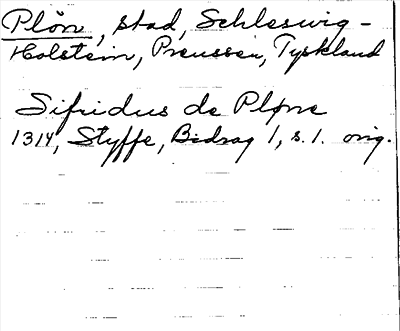 Plön, stad, Schleswig-
Holstein, Preussen, Tyskland
Sifridus de Pløne
1314, Styffe, Bidrag 1, s. 1. orig.